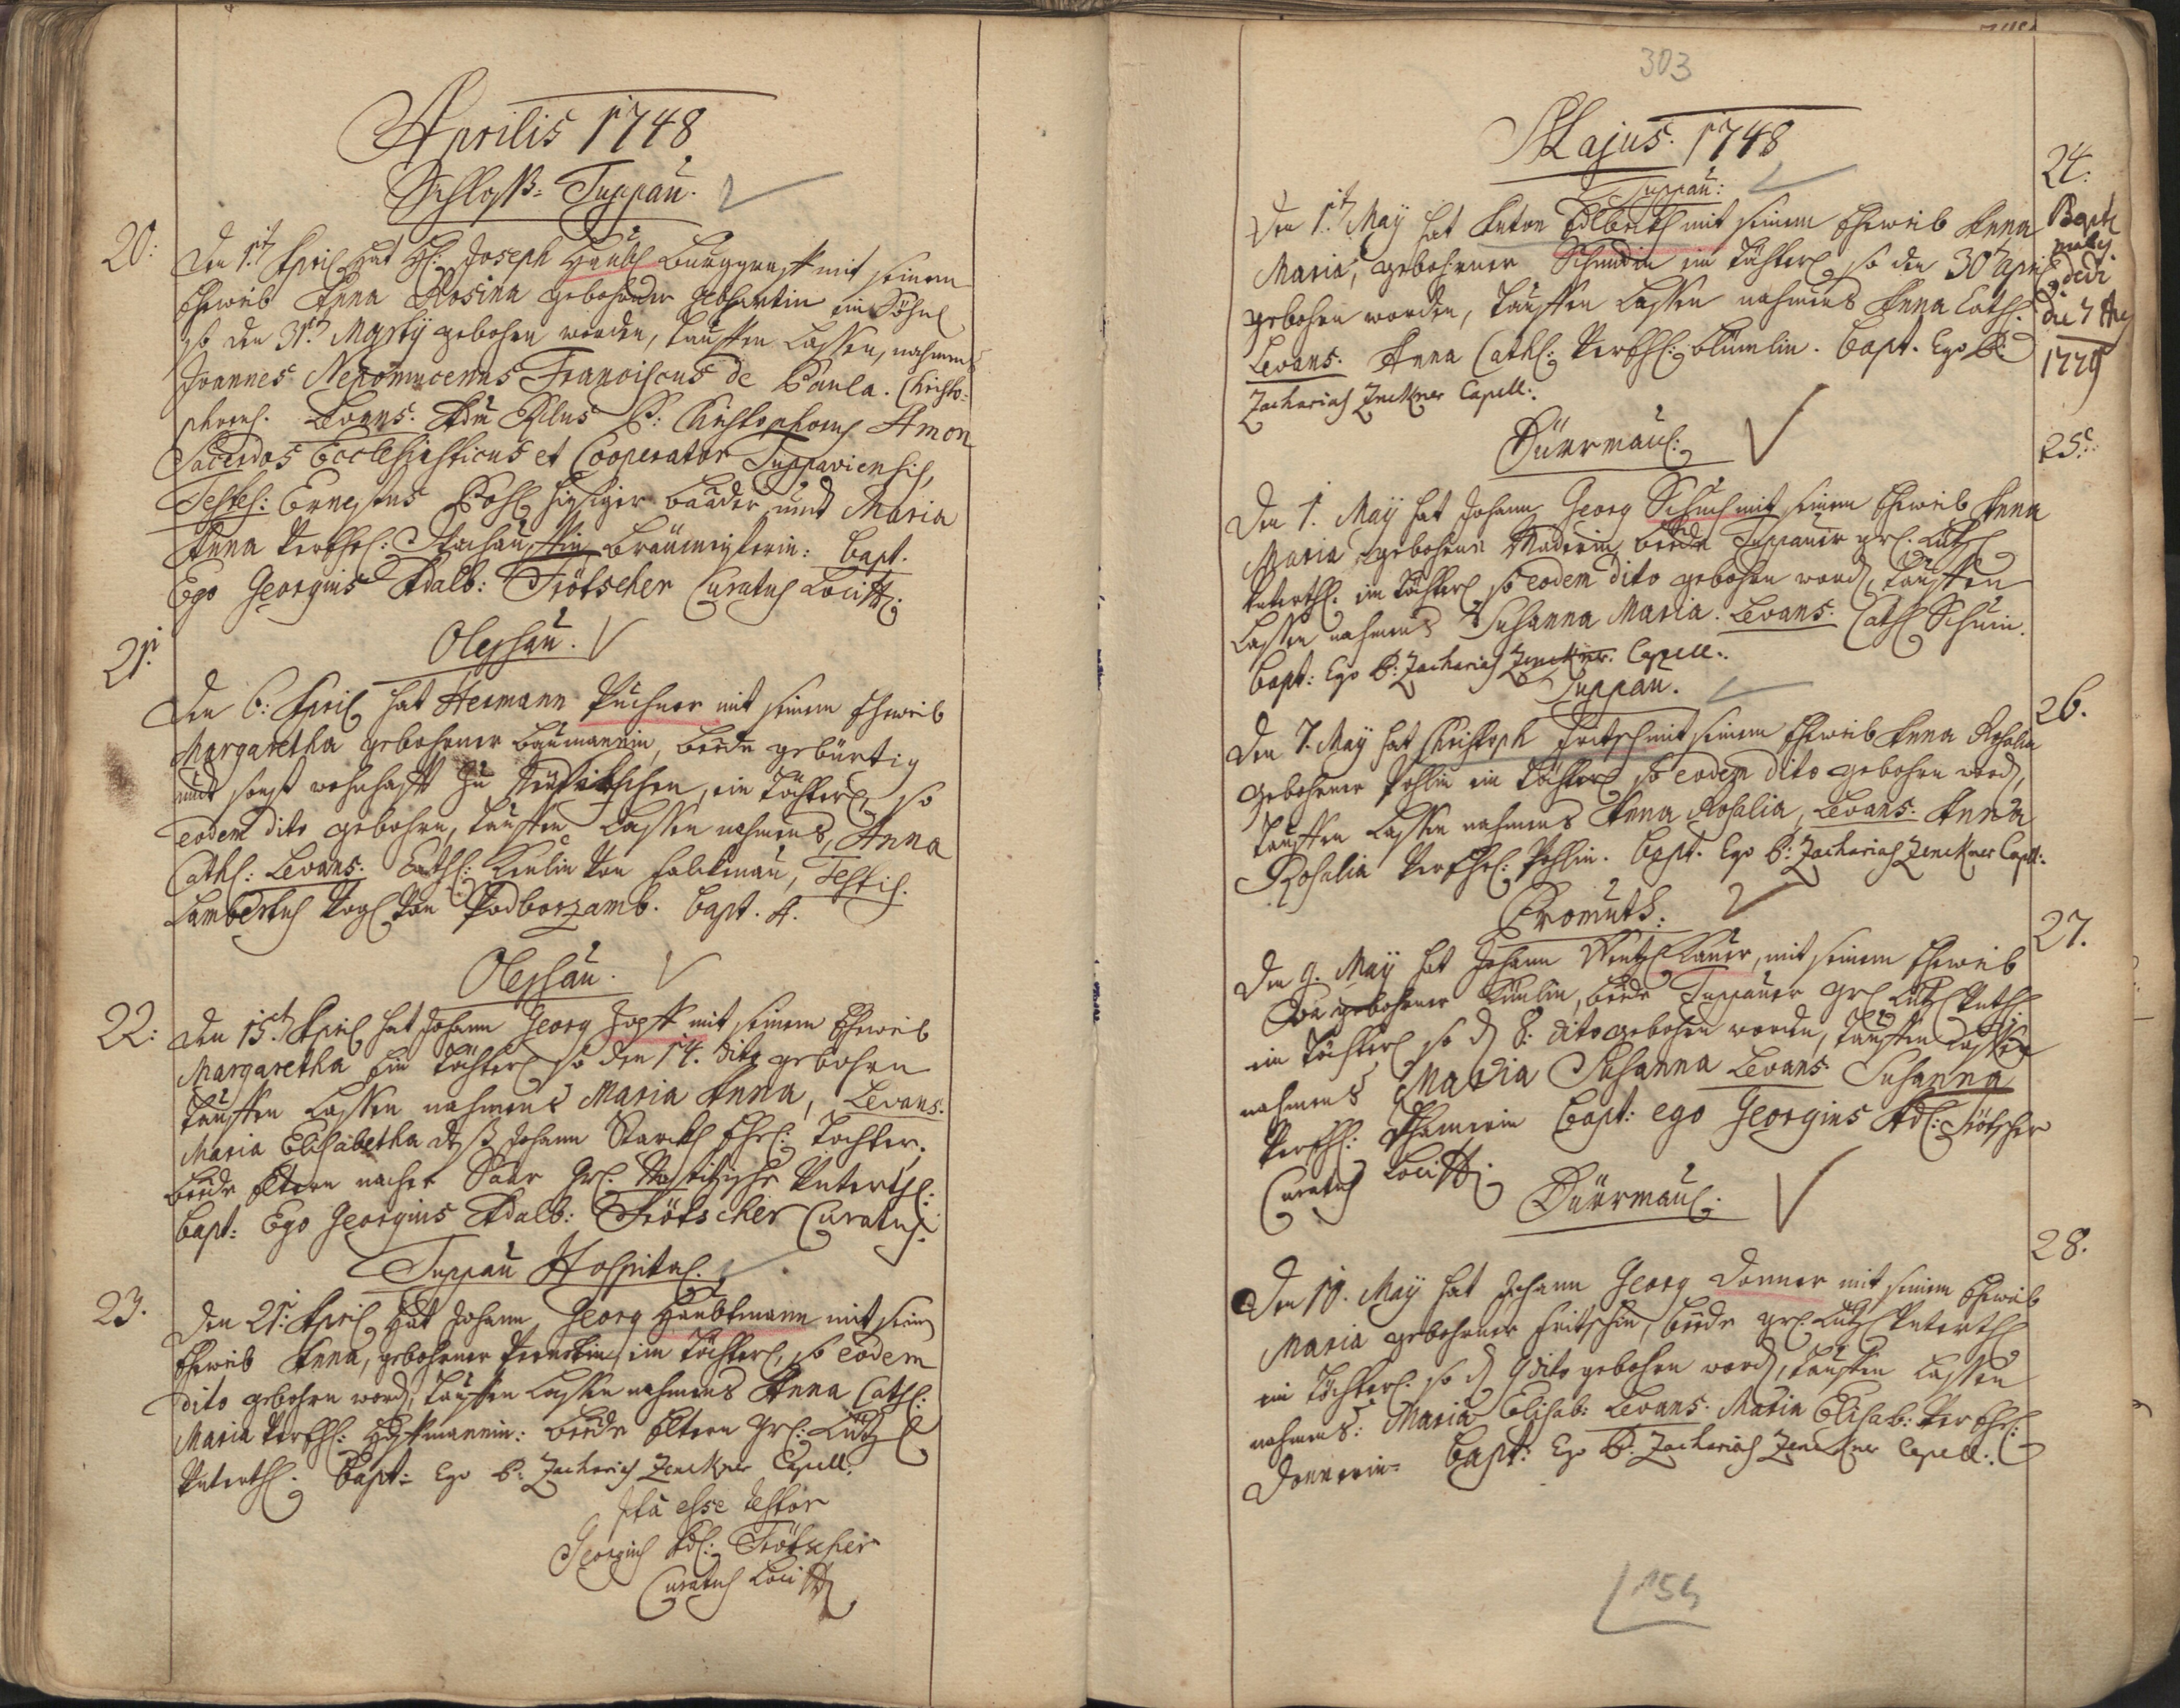 Aprilis 1748
Schloß= Duppau.
20:
Den 1.t April hat H: Joseph Haubl Burggraff mit seinem
Eheweib Anna Rosina gebohrner Gebhartin ein Söhnl
so den 31.t Martij gebohrn worden, tauffen lassen, nahmens
Joannes Nepomucenus Franciscus de Paula. Christo=
phorus. Levans. Adm P: Christophorus Amon
Sacerdos Ecclesiasticus et Cooperator Duppaviensis,
Testes: Ernestus Pohl hiesiger Baader und Maria
Anna Verehel: Bräumeisterin: Bapt.
Ego Georgius Adalb: Trötscher Curatus Loci
21.
Oleschau.
Den 6: April hat Hermann Puchner mit seinem Eheweib
Margaretha gebohrner Baumannin, beede gebürtig
und sonst wohnhafft zu ein Töchterl, so
eodem dito gebohrn, tauffen lassen nahmens, Anna
Cath: Levans. Cath: Keilin von Falckinau, Testis.
Lambertus Vogl von Podborzamb. Bapt. A.
Oleschau.
22:
Den 15.t April hat Johann Georg Zopff mit seinem Eheweib
Margaretha ein Töchterl so den 14. dito gebohrn
tauffen lassen nahmens Maria Anna, Levans.
Maria Elisabetha deß Johann Starckh Ehel: Tochter,
beede Eltern nacher Saar Gr: Unterth:
Bapt: Ego Georgius Adalb: Trötscher Curatus.
Duppau Hospital.
23.
Den 21: April hat Johann Georg Haubtmann mit sein
Eheweib Anna, gebohrner ein Töchterl, so eodem
dito gebohrn word, tauffen lassen nahmens Anna Cath:
Maria Verehl: beede Eltern Gr: Lütz
Unterth: Bapt: Ego P: Zacharias Zenckner Capell:
Ita esse testor
Georgius Ad: Trötscher
Curatus Loci
303
Majus. 1748
Duppau:
24.
Den 1.t Maÿ hat Anton Edlbeckh mit seinem Eheweib Anna
Maria, gebohrner Schmidin ein Töchterl, so den 30 April
gebohrn worden, tauffen lassen nahmens Anna Cath:
Levans. Anna Cath: Verehl: Blümlin. Bapt. Ego P:
Zacharias Zenckner Capell:
dedi
1779
Dürrmaul:
25.
Den 1. Maÿ hat Johann Georg Schuch mit seinem Eheweib Anna
Maria gebohrner Maderin beede Duppauer gr: Lütz
Unterth: ein Töchterl so eodem dito gebohrn word, tauffen
lassen nahmens Susanna Maria. Levans. Cath Schuin.
Bapt: Ego P: Zacharias Zenckner. Capell:
Duppau.
26.
Den 7. Maÿ hat Christoph Fritsch mit seinem Eheweib Anna Rosalia
gebohrner Pohlin ein Töchterl so eodem dito gebohrn word,
tauffen lassen nahmens Anna Rosalia, Levans: Anna
Rosalia Verehel: Pohlin. Bapt. Ego P: Zacharias Zenckner Capell:
Promuth:
27.
Den 9. Maÿ hat Johann Wentzl Lauer, mit seinem Eheweib
Eva gebohrner beede Duppauer gr: Lütz Unth:
ein Töchterl so d 8: dito gebohrn worden, tauffen lassen
nahmens Maria Susanna Levans Susanna
Verehl: Bapt: ego Georgius Ad: Trötscher
Curatus Loci
Dürrmaul:
28.
Den 10. Maÿ hat Johann Georg Donner mit seinem Eheweib
Maria gebohrner Fritschin, beede gr: Lütz Unterth:
ein Töchterl. so d 9 dito gebohrn word, tauffen lassen
nahmens: Maria Elisab: Levans: Maria Elisab: Verehel:
Donnerin= Bapt: Ego P: Zacharias Zenckner Capell: